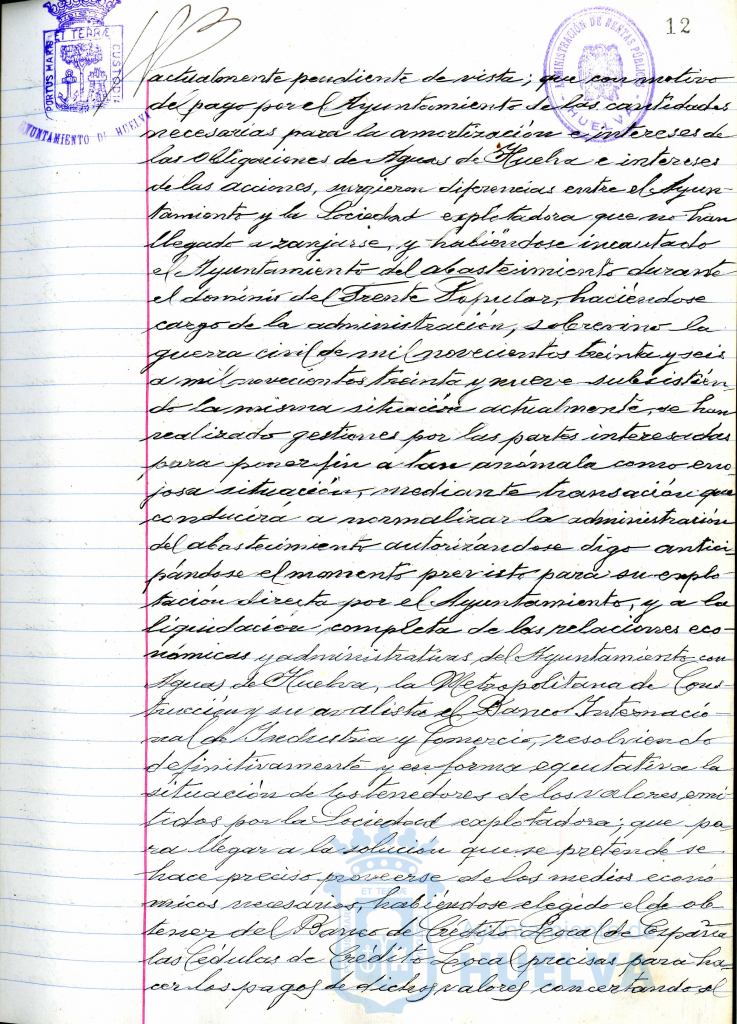 12
PORTUS MARIS ET TERRÆ CUSTODIA
AYUNTAMIENTO DE HUELVA
ADMINISTRACIÓN DE RENTAS PÚBLICAS
HUELVA
actualmente pendiente de vista; que con motivo
del pago por el Ayuntamiento de las cantidades
necesarias para la amortización e intereses de
las obligaciones de Aguas de Huelva e intereses
de las acciones, surgieron diferencias entre el Ayun-
tamiento y la Sociedad explotadora que no han
llegado a zanjarse, y habiéndose incautado
el Ayuntamiento del abastecimiento durante
el dominio del Frente Popular, haciéndose
cargo de la administración, sobrevino la
guerra civil de mil novecientos treinta y seis
a mil novecientos treinta y nueve subsistién-
do la misma situación actualmente, se han
realizado gestiones por las partes interesadas
para poner fin a tan anómala como eno-
josa situación, mediante transación que
conducirá a normalizar la administración
del abastecimiento autorizándose digo antici-
pándose el momento previsto para su explo-
tación directa por el Ayuntamiento, y a la
liquidación completa de las relaciones eco-
nómicas y administrativas del Ayuntamiento con
Aguas de Huelva, la Metropolitana de Cons-
trucción y su avalista el Banco Internacio-
nal de Industria y Comercio, resolviendo
definitivamente y en forma equitativa la
situación de los tenedores de los valores emi-
tidos por la Sociedad explotadora; que pa-
ra llegar a la solución que se pretende se
hace preciso proveerse de los medios econó-
micos necesarios, habiéndose elegido el de ob-
tener del Banco de Crédito Local de España
las Cédulas de Crédito Local precisas para ha-
cer los pagos de dichos valores concertando al
Ayuntamiento de
HUELVA